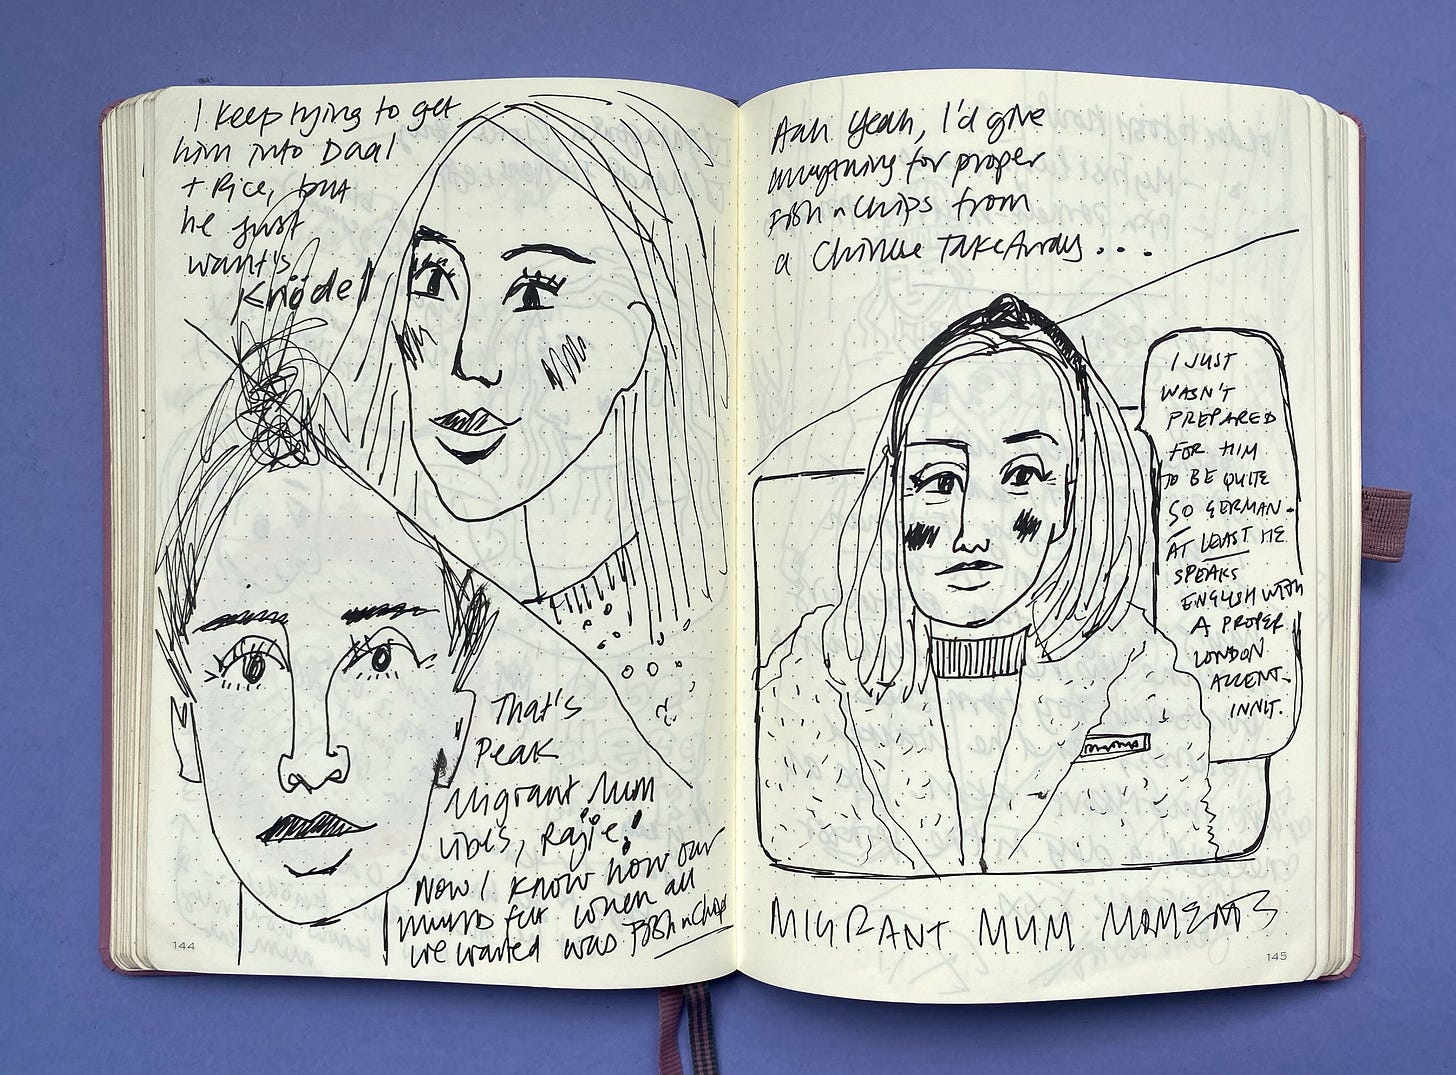 I keep trying to get
him into Daal
+ Rice, but
he just
want's
Knödel
That's
Peak
Migrant Mum
vibes, Rajie!
Now I know how our
mums felt when all
we wanted was Fish n Chips
144
Aah Yeah, I'd give
anything for proper
Fish n Chips from
a Chinese TakeAway...
I JUST
WASN'T
PREPARED
FOR HIM
TO BE QUITE
SO GERMAN-
AT LEAST HE
SPEAKS
ENGLISH WITH
A PROPER
LONDON
ACCENT-
INNIT.
MIGRANT MUM MOMENTS
145